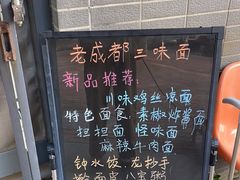 老成都三味面
新品推荐:
川味鸡丝凉面
特色面食、素椒炸酱面
担担面 怪味面
麻辣牛肉面
钟水饺、龙抄手
八宝粥